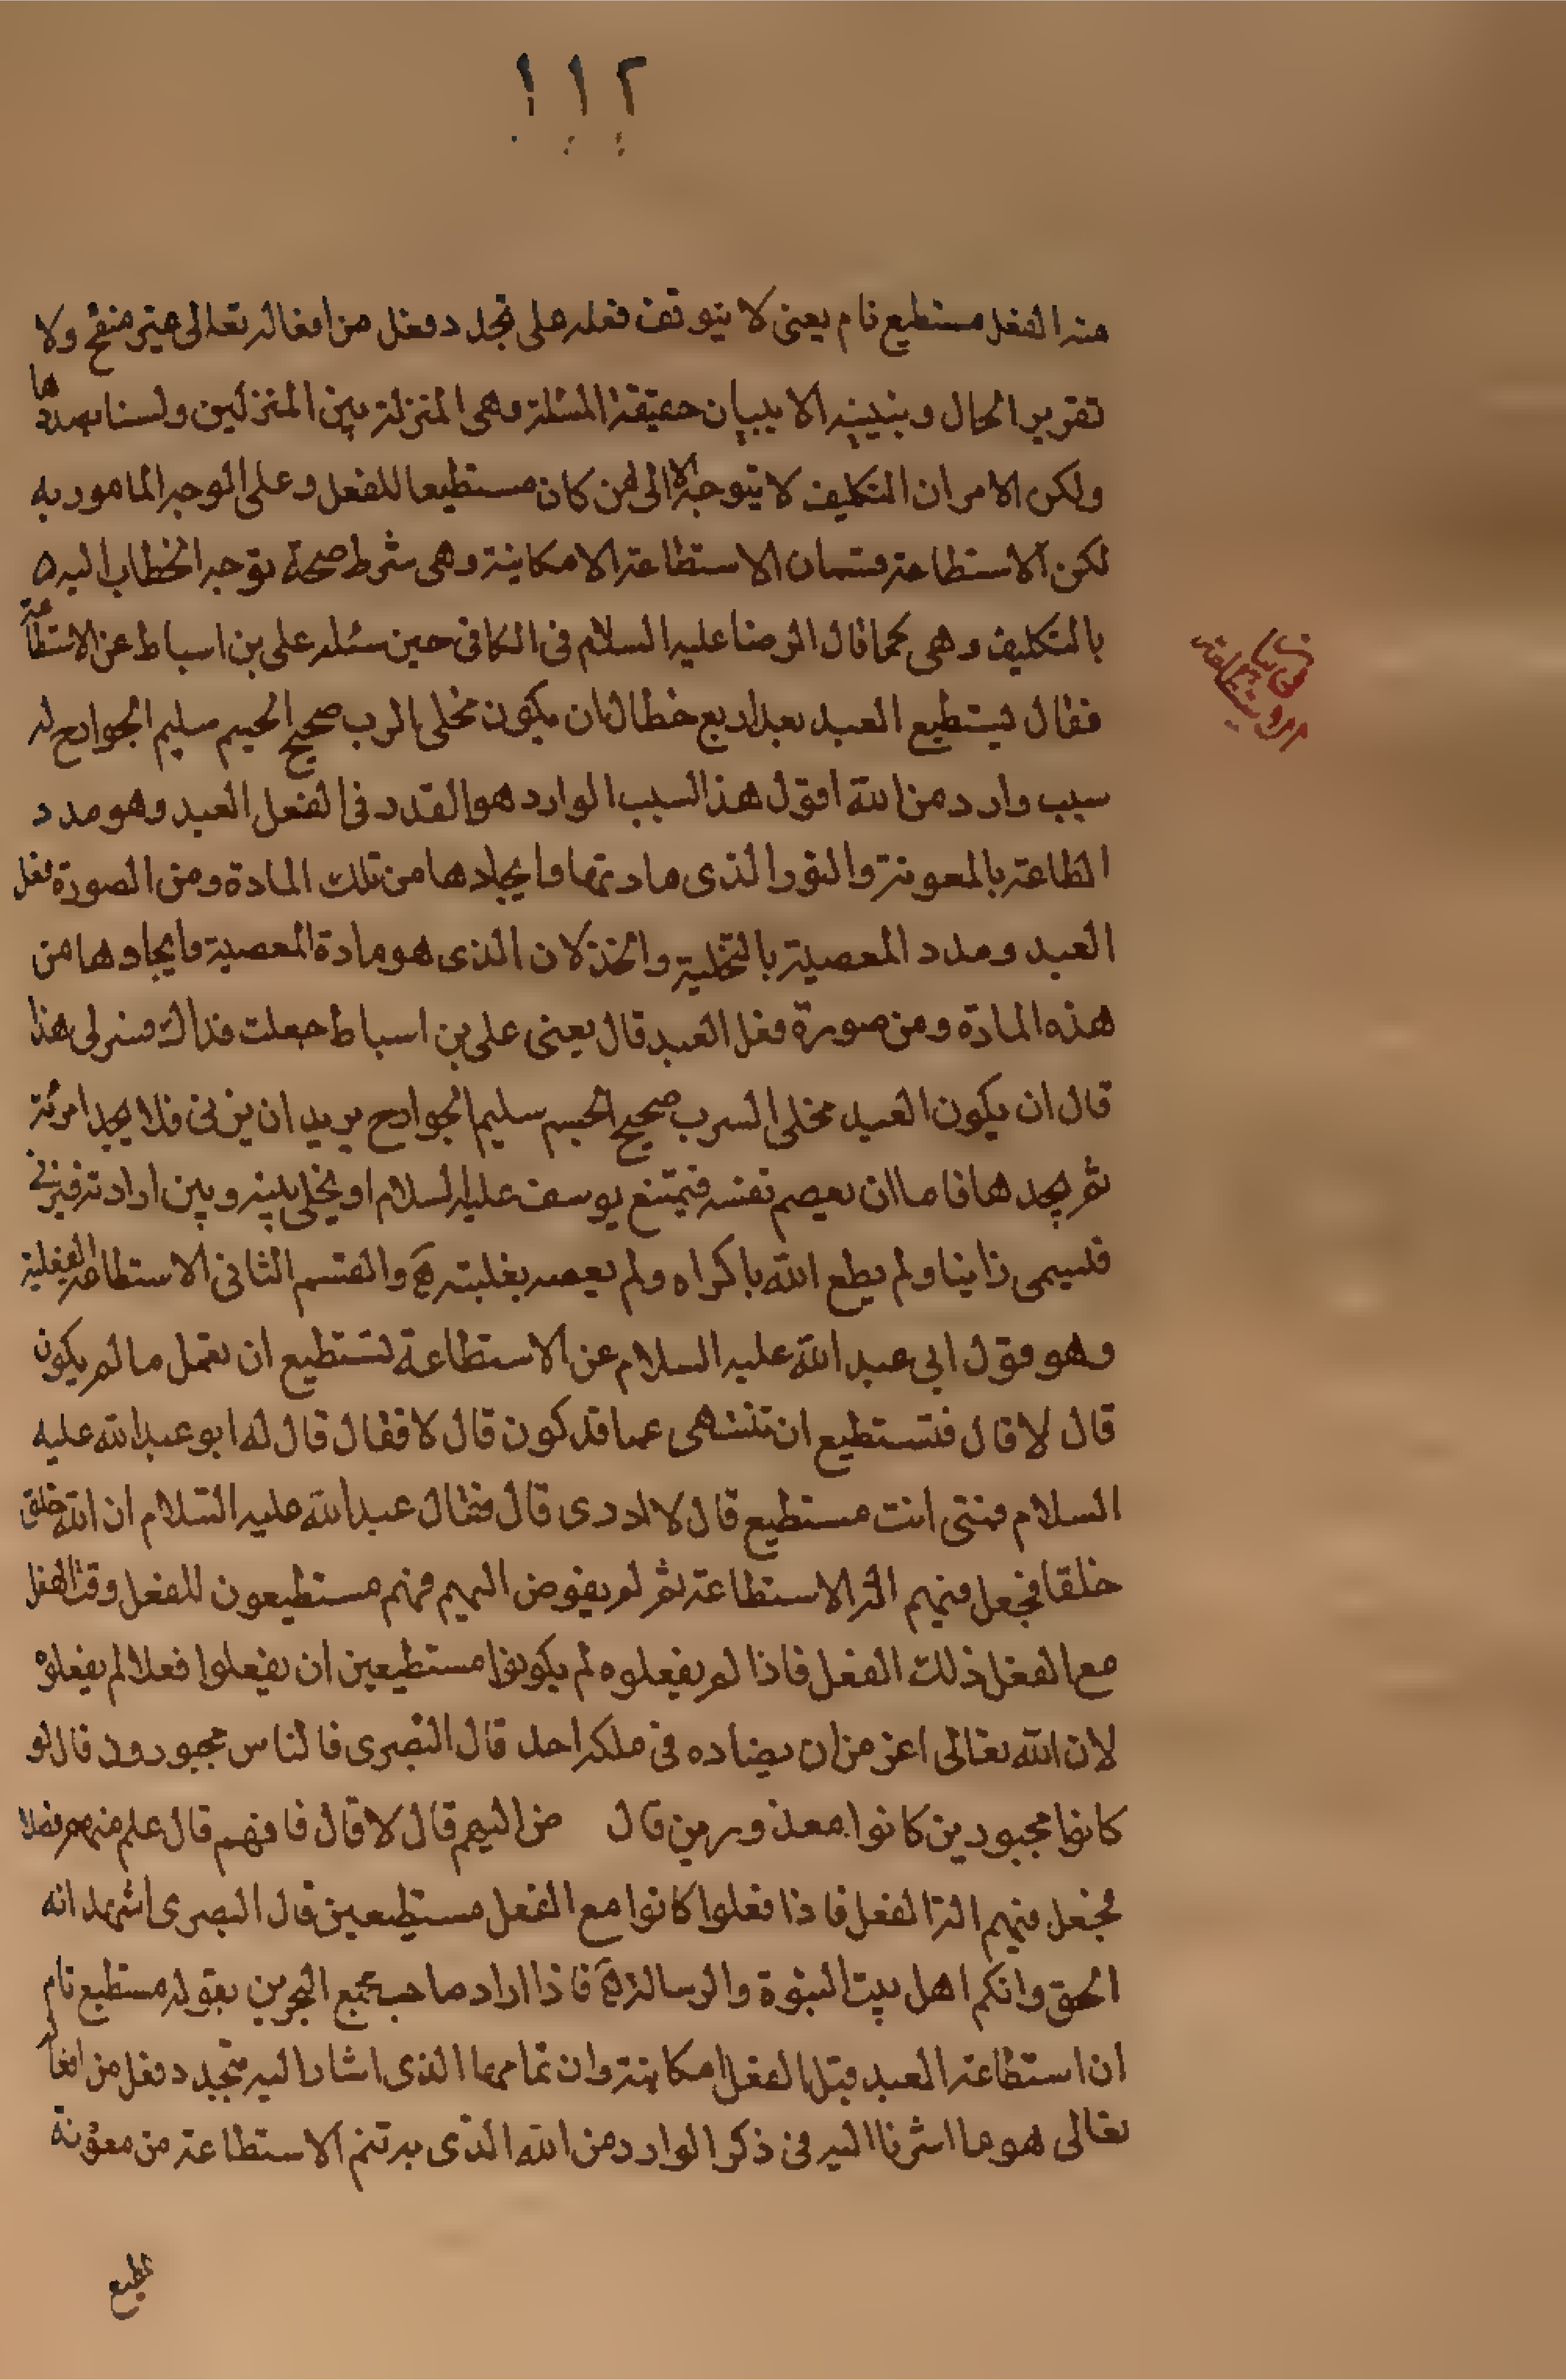 ٢١١
منه الفعل مستطيع تام يعنى لا يتوقف فعله على تجدد فعل من افعاله تعالى غير منقح ولا
تقرير الحال وبنيته الا ببيان حقيقة المسئلة وهى المنزلة بين المنزلتين ولسنا بصددها
ولكن الامر ان التكليف لا يتوجه الا الى من كان مستطيعا للفعل وعلى الوجه المامور به
لكن الاستطاعة قسمان الاستطاعة الامكانية وهى شرط صحة توجه الخطاب اليه
بالتكليف وهى كما قال الرضا عليه السلام فى الكافى حين سئله على بن اسباط عن الاستطاعة
فقال يستطيع العبد بعد اربع خطال ان يكون مخلى الرب صحيح الجسم سليم الجوارح له
سبب وارد من الله اقول هذا السبب الوارد هو القدر فى الفعل العبد وهو مدد
الطاعة بالمعونة والنور الذى مادتها وايجادها من تلك المادة ومن الصورة فعل
العبد ومدد المعصية بالتخلية والخذلان الذى هو مادة المعصية وايجادها من
هذه المادة ومن صورة فعل العبد قال يعنى على بن اسباط جعلت فداك فسر لى هذا
قال ان يكون العبد مخلى السرب صحيح الجسم سليم الجوارح يريد ان يزنى فلا يجد امرئة
ثم يجدها فاما ان يعصم نفسه فيمتنع يوسف عليه السلام او يخلى بينه وبين ارادته فيزنى
فسيمى زانيا ولم يطع الله باكراه ولم يعصه بغلبته والقسم الثانى الاستطاعة الفعلية
وهو قول ابى عبد الله عليه السلام عن الاستطاعة تستطيع ان تعمل ما لم يكون
قال لا قال فتستطيع ان تنتهى عما قد كون قال لا فقال قال له ابو عبد الله عليه
السلام فمتى انت مستطيع قال لا ادرى قال فقال عبد الله عليه السلام ان الله خلق
خلقا فجعل فيهم الة الاستطاعة ثم لم يفوض اليهم فهم مستطيعون للفعل وقت الفعل
مع الفعل ذلك الفعل فاذا لم يفعلوه لم يكونوا مستطيعين ان يفعلوا فعلا لم يفعلوه
لان الله تعالى اعز من ان يضاده فى ملكه احد قال البصرى فالناس مجبورون قال لو
كانوا مجبورين كانوا معذورين قال ض اليهم قال لا قال فافهم قال علم منهم فعلا
فجعل فيهم الة الفعل فاذا فعلوا كانوا مع الفعل مستطيعين قال البصرى اشهد انه
الحق وانكم اهل بيت النبوة والرسالة فاذا اراد صاحب مجمع البحرين بقوله مستطيع تام
ان استطاعة العبد قبل الفعل امكانية وان تمامها الذى اشار اليه تتجدد فعل من افعاله
تعالى هو ما اشرنا اليه فى ذكر الوارد من الله الذى به تتم الاستطاعة من معونة